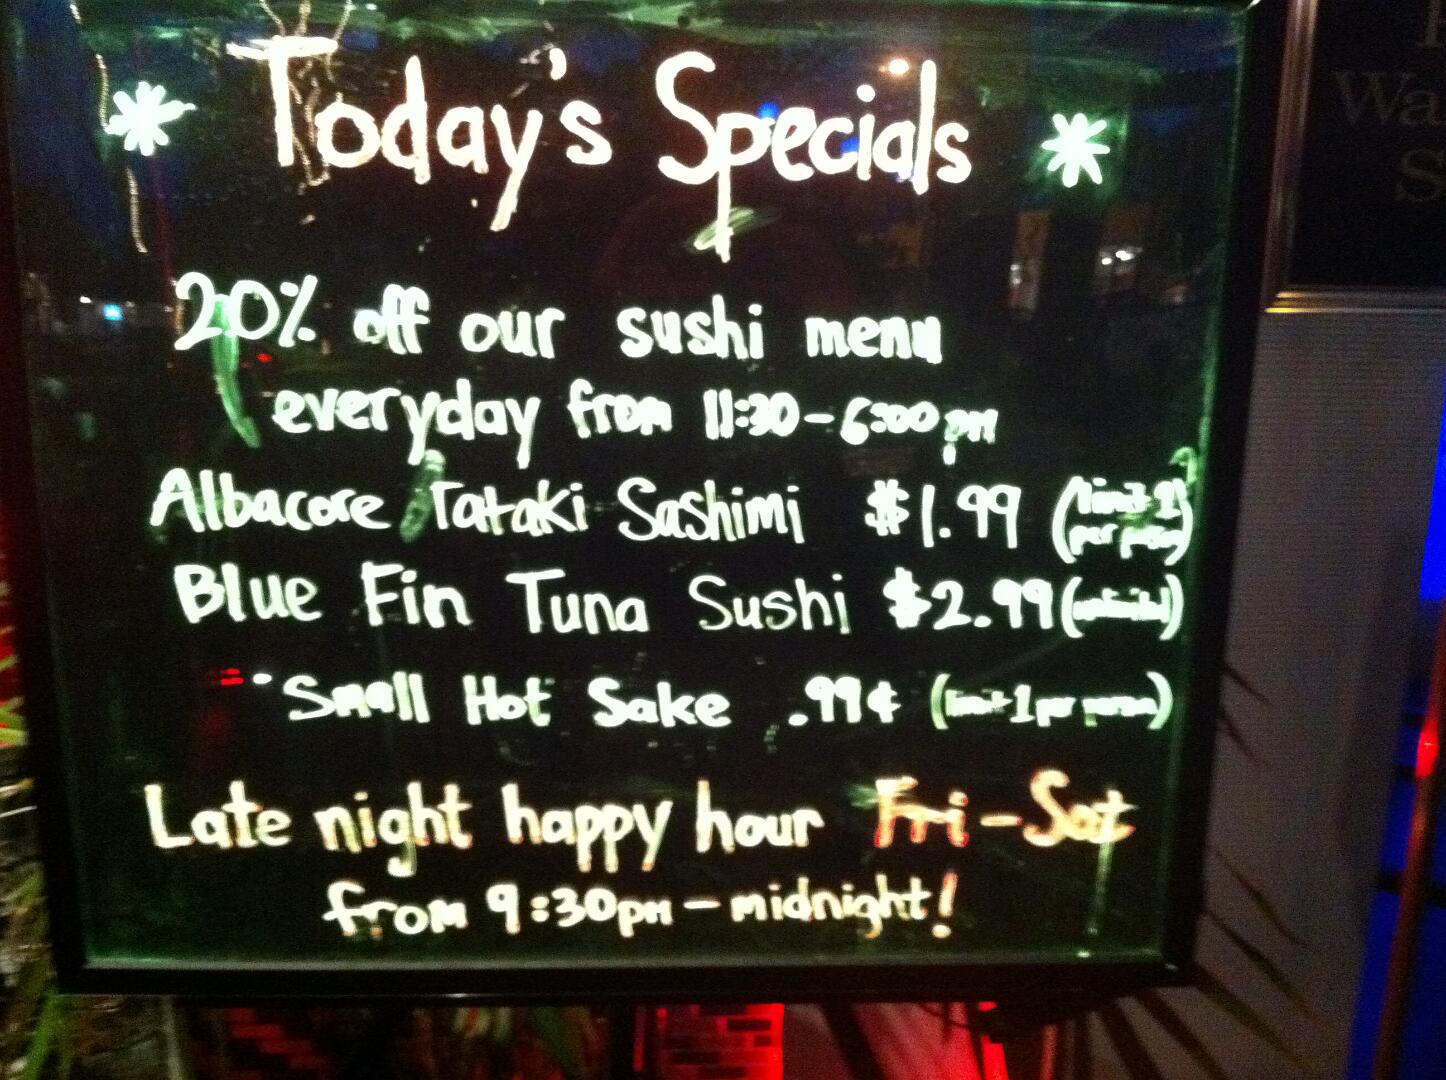 * Today's Specials *
20% off our sushi menu
everyday from 11:30-6:00pm
Albacore Tataki Sashimi $1.99 (limit 1 per person)
Blue Fin Tuna Sushi $2.99 (unlimited)
Small Hot Sake .99¢ (limit 1 per person)
Late night happy hour Fri-Sat
from 9:30pm-midnight!